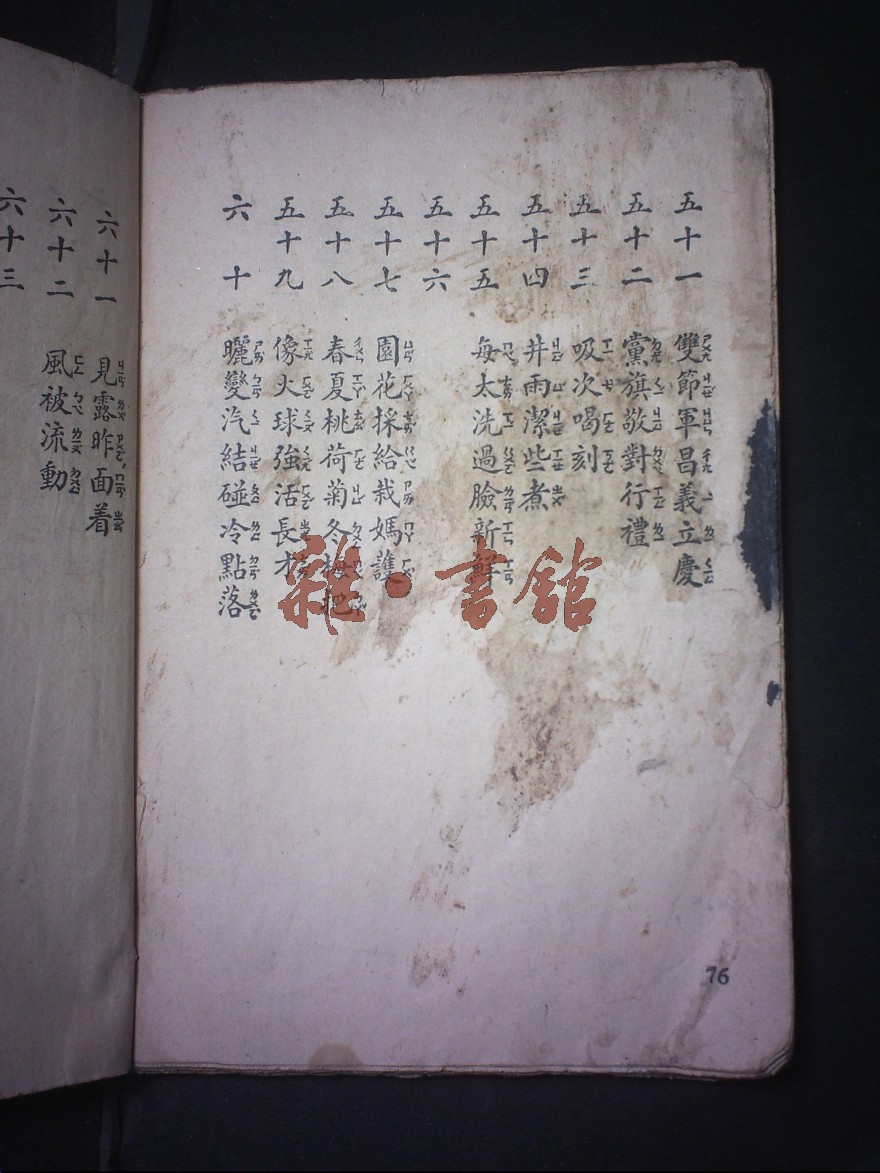 五十一 雙節軍昌義立慶
五十二 黨旗敬對行禮
五十三 吸次喝刻
五十四 井雨潔些煮
五十五 每太洗過臉新鮮
五十六
五十七 園花採給栽媽護
五十八 春夏桃荷菊冬梅把
五十九 像火球強活長才
六十 曬變汽結碰冷點落
76
六十一 見露昨面着
六十二 風被流動
六十三
雜·書館